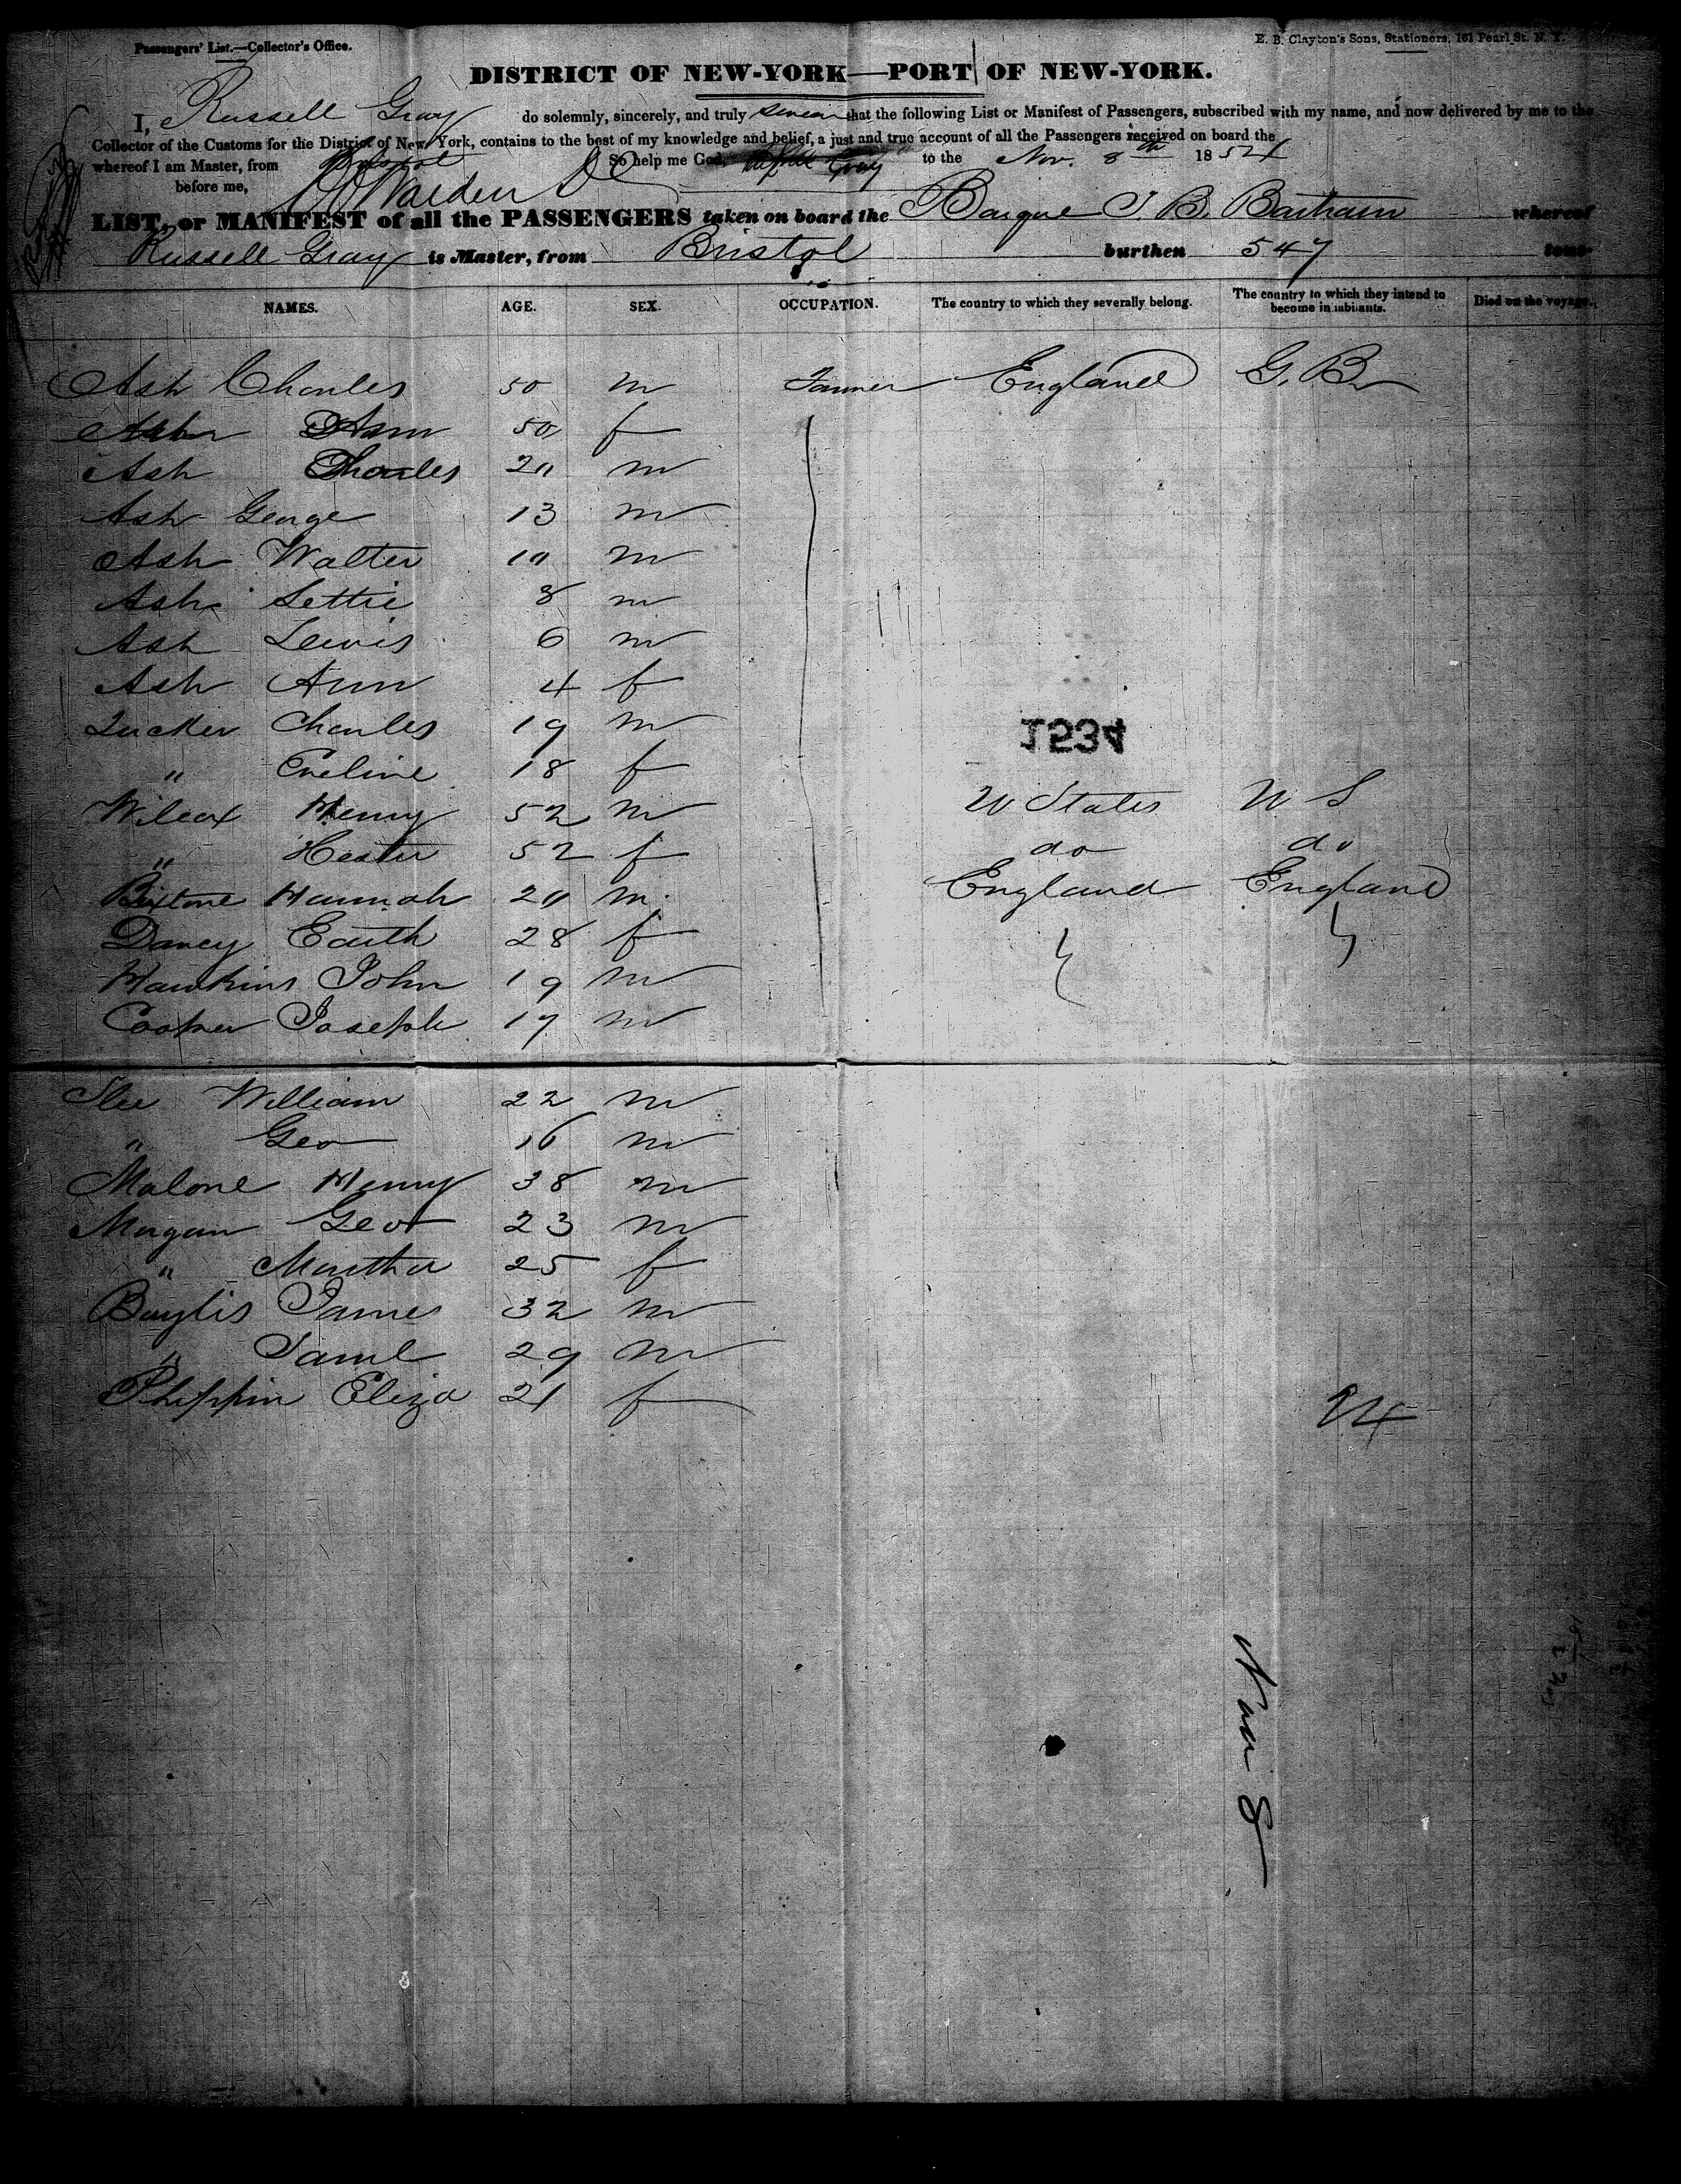 Passengers' List.—Collector's Office.
E. B. Clayton's Sons, Stationers, 161 Pearl St. N. Y.
DISTRICT OF NEW-YORK—PORT OF NEW-YORK.
I, Russell Gray do solemnly, sincerely, and truly swear that the following List or Manifest of Passengers, subscribed with my name, and now delivered by me to the
Collector of the Customs for the District of New York, contains to the best of my knowledge and belief, a just and true account of all the Passengers received on board the
whereof I am Master, from Bristol So help me God. Gray to the Nov. 8th 1854
before me,
LIST, or MANIFEST of all the PASSENGERS taken on board the Barque whereof
Russell Gray is Master, from Bristol burthen 547 tons.
NAMES. AGE. SEX. OCCUPATION. The country to which they severally belong. The country to which they intend to become inhabitants. Died on the voyage.
Ash Charles 50 m Farmer England G. Br
Ash Ann 50 f
Ash Charles 20 m
Ash George 13 m
Ash Walter 10 m
Ash Lettie 8 m
Ash Lewis 6 m
Ash Ann 4 f
Tucker Charles 19 m
1534
" Eveline 18 f
Wilcox Henry 52 m U States U S
" Hester 52 f do do
Hannah 20 m. England England
Dancy 28 f
Hawkins John 19 m
Cooper Joseph 17 m
William 22 m
" Geo 16 m
Malone Henry 38 m
Morgan Geo 23 m
" Martha 25 f
Baylis James 32 m
" Saml 29 m
Phippin Eliza 21 f
24
Nov 8